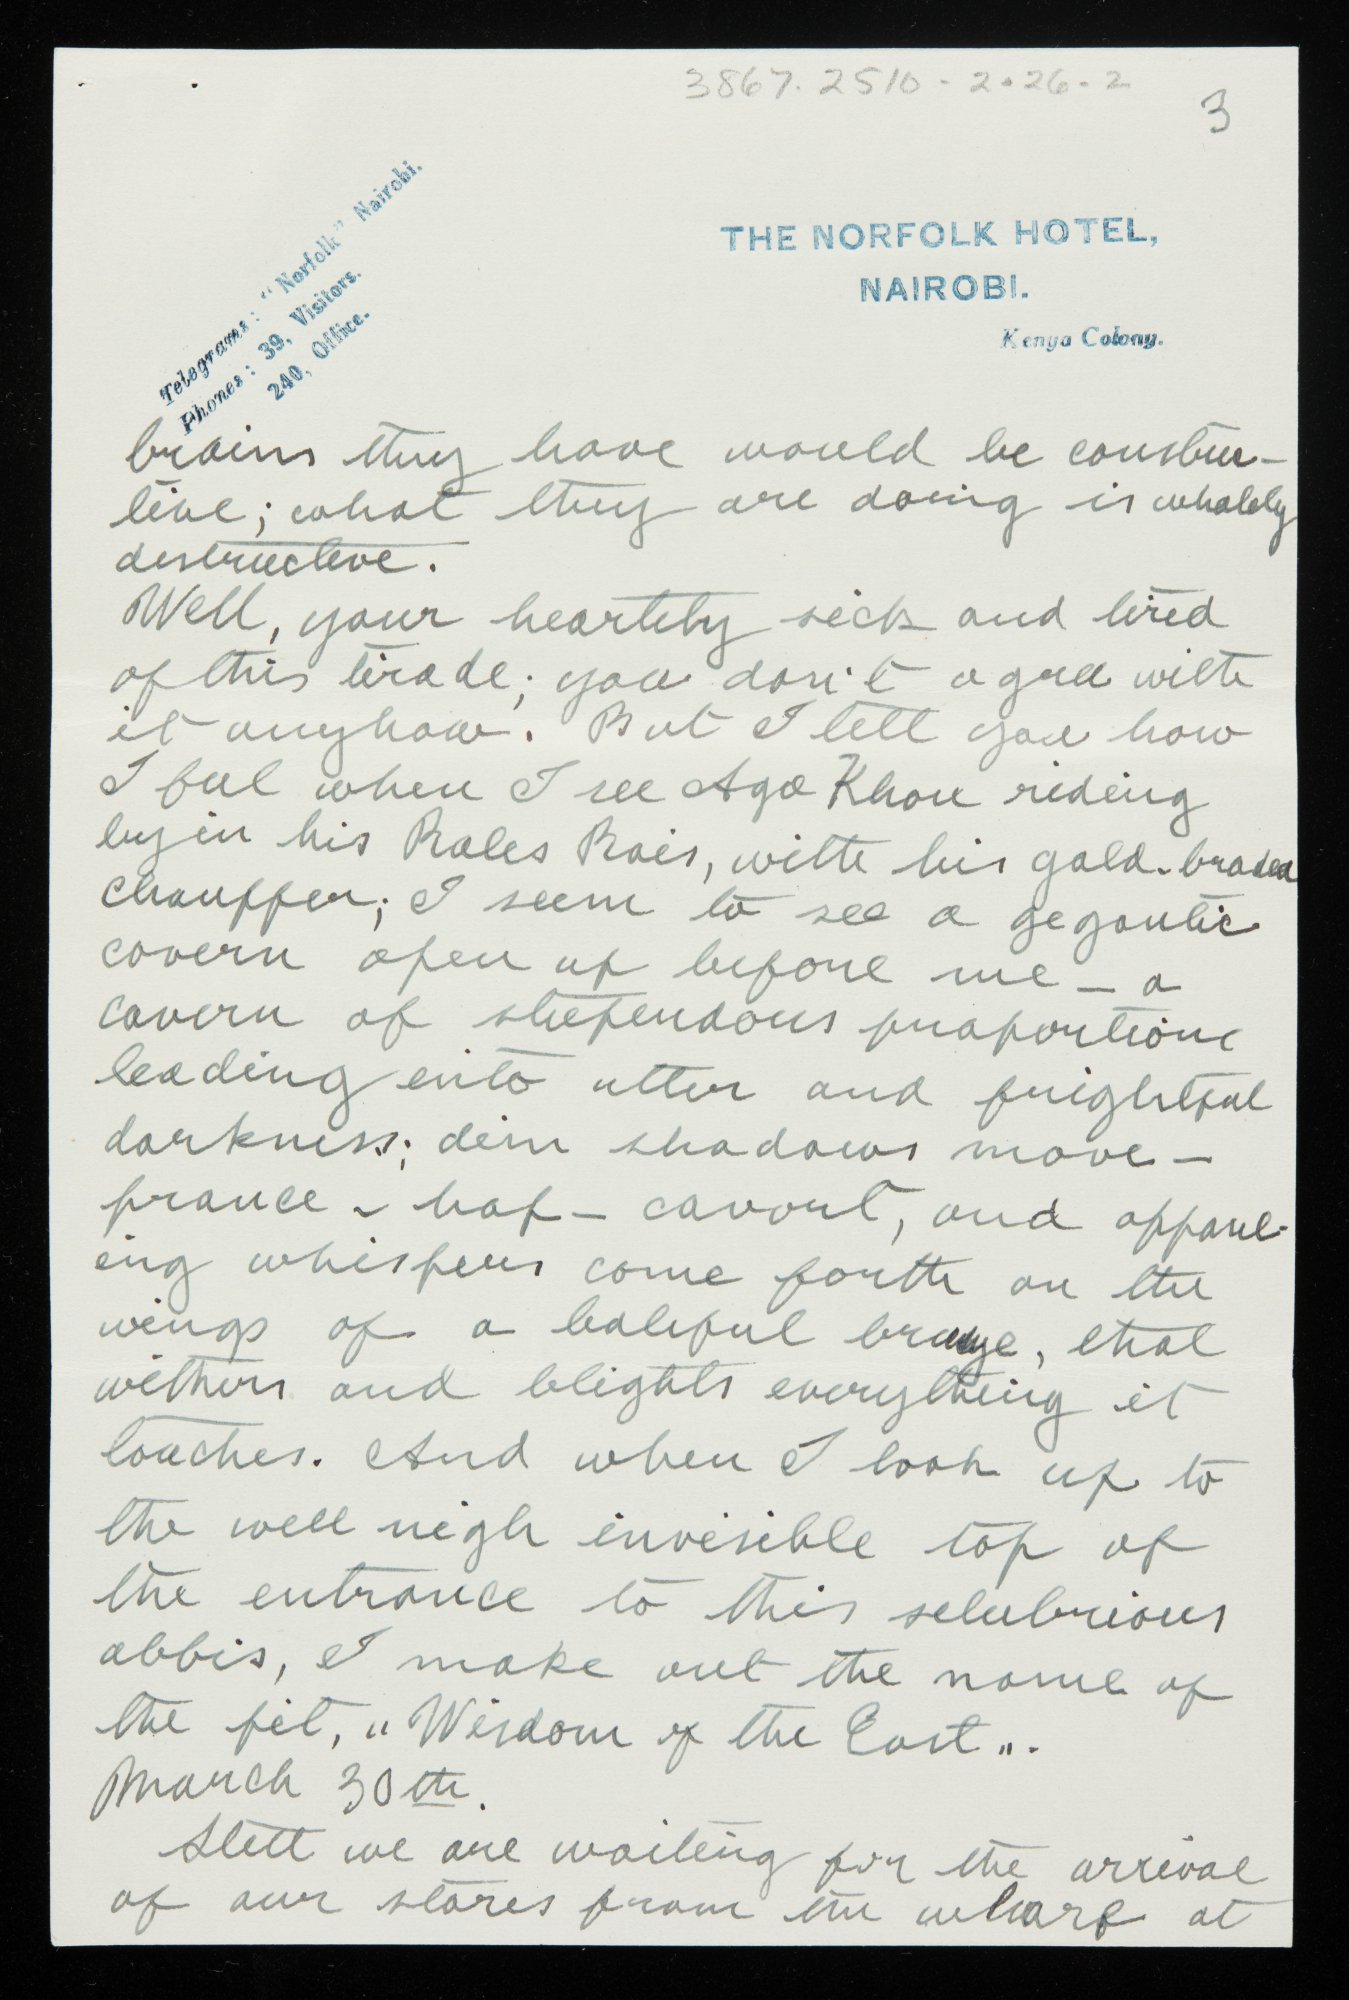 3867.2510-2.26-2
3
Telegrams: "Norfolk" Nairobi.
Phones: 39, Visitors.
240, Office.
THE NORFOLK HOTEL,
NAIROBI.
Kenya Colony.
brains they have would be construc-
tive; what they are doing is wholely
destructive.
Well, your heartily sick and tired
of this tirade; you don't agree with
it anyhow. But I tell you how
I feel when I see Aga Khan riding
by in his Roles Rois, with his gold-braded
chauffer; I seem to see a gegantic
cavern open up before me — a
cavern of stupendous proportions
leading into utter and frightful
darkness; dim shadows move —
prance - hop - cavort, and
ing whispers come forth on the
wings of a baleful , that
withers and blights everything it
touches. And when I look up to
the well nigh invisible top of
the entrance to this selubrious
abbis, I make out the name of
the pit, "Wisdom of the East".
March 30th.
Still we are waiting for the arrival
of our stores from the wharf at